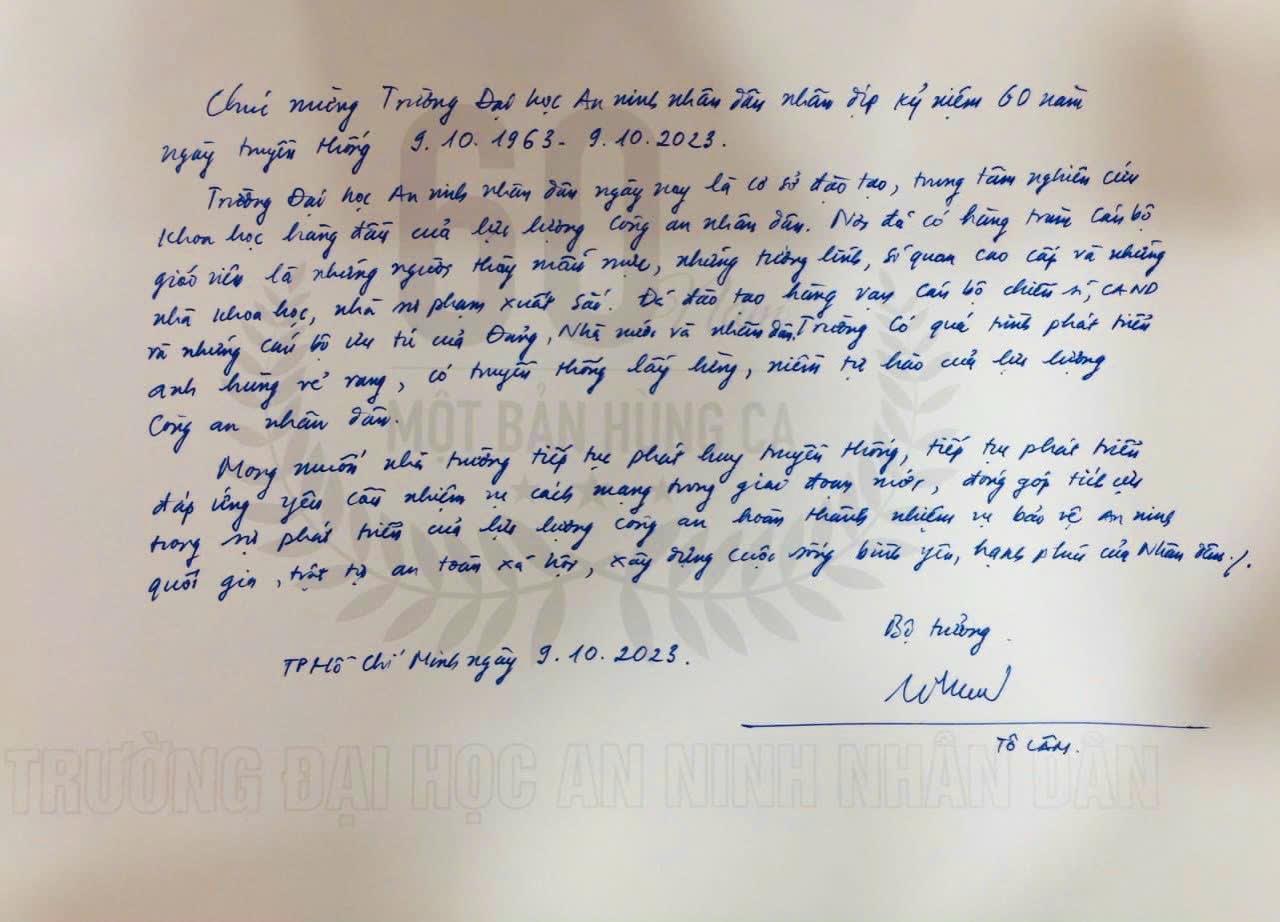 Chúc mừng Trường Đại học An ninh nhân dân nhân dịp kỷ niệm 60 năm
ngày truyền thống 9.10.1963 - 9.10.2023.
Trường Đại học An ninh nhân dân ngày nay là cơ sở đào tạo, trung tâm nghiên cứu
khoa học hàng đầu của lực lượng Công an nhân dân. Nơi đã có hàng trăm cán bộ
giáo viên là những người thầy mẫu mực, những tướng lĩnh, sĩ quan cao cấp và những
nhà khoa học, nhà sư phạm xuất sắc. Đã đào tạo hàng vạn cán bộ chiến sĩ, CAND
và những cán bộ ưu tú của Đảng, Nhà nước và nhân dân. Trường có quá trình phát triển
anh hùng vẻ vang, có truyền thống lẫy lừng, niềm tự hào của lực lượng
Công an nhân dân.
Mong muốn nhà trường tiếp tục phát huy truyền thống, tiếp tục phát triển
đáp ứng yêu cầu nhiệm vụ cách mạng trong giai đoạn mới, đóng góp tích cực
trong sự phát triển của lực lượng công an hoàn thành nhiệm vụ bảo vệ An ninh
quốc gia, trật tự an toàn xã hội, xây dựng cuộc sống bình yên, hạnh phúc của Nhân dân./.
Bộ trưởng.
TP Hồ Chí Minh ngày 9.10.2023.
Tô Lâm.
60
Năm
MỘT BẢN HÙNG CA
TRƯỜNG ĐẠI HỌC AN NINH NHÂN DÂN